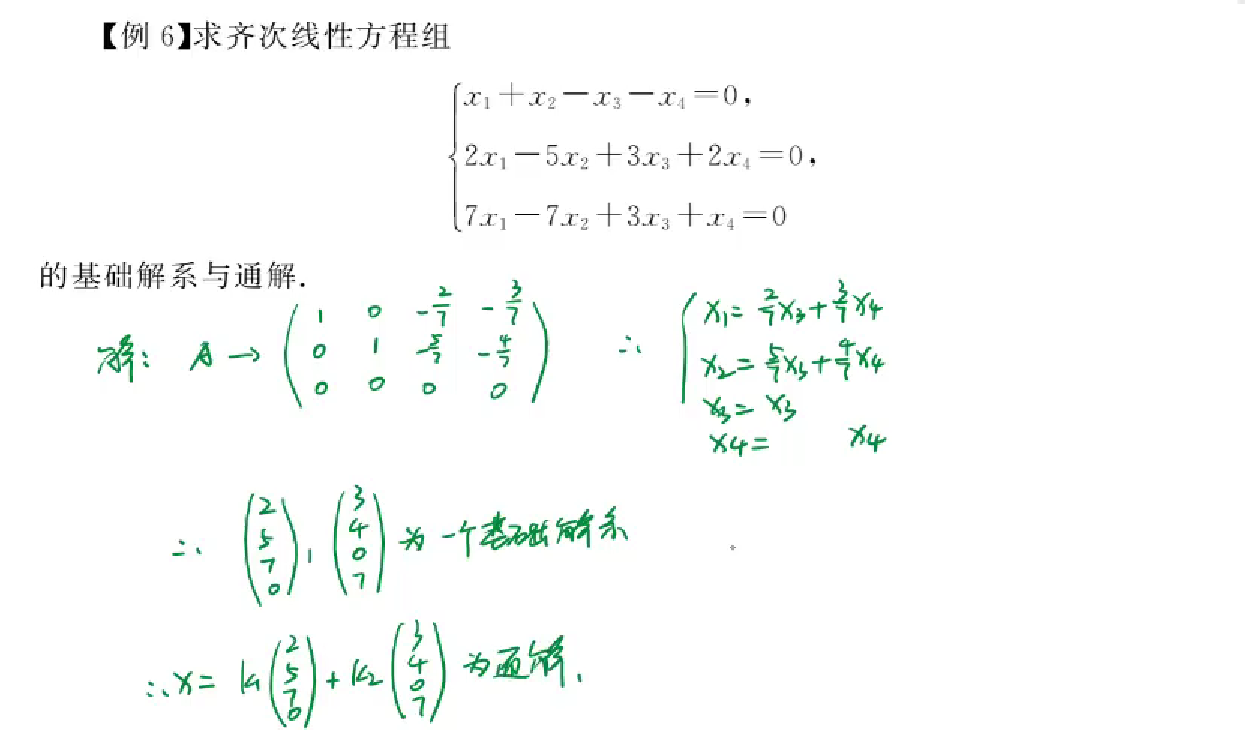 【例 6】求齐次线性方程组
x₁+x₂-x₃-x₄=0,
2x₁-5x₂+3x₃+2x₄=0,
7x₁-7x₂+3x₃+x₄=0
的基础解系与通解.
解: A → ( 1 0 -2/7 -3/7 ∴ { x₁= 2/7x₃+3/7x₄
0 1 -5/7 -4/7 x₂= 5/7x₃+4/7x₄
0 0 0 0 ) x₃= x₃
x₄= x₄
∴ (2 5 7 0), (3 4 0 7) 为一个基础解系
∴x= k₁(2 5 7 0)+k₂(3 4 0 7) 为通解.